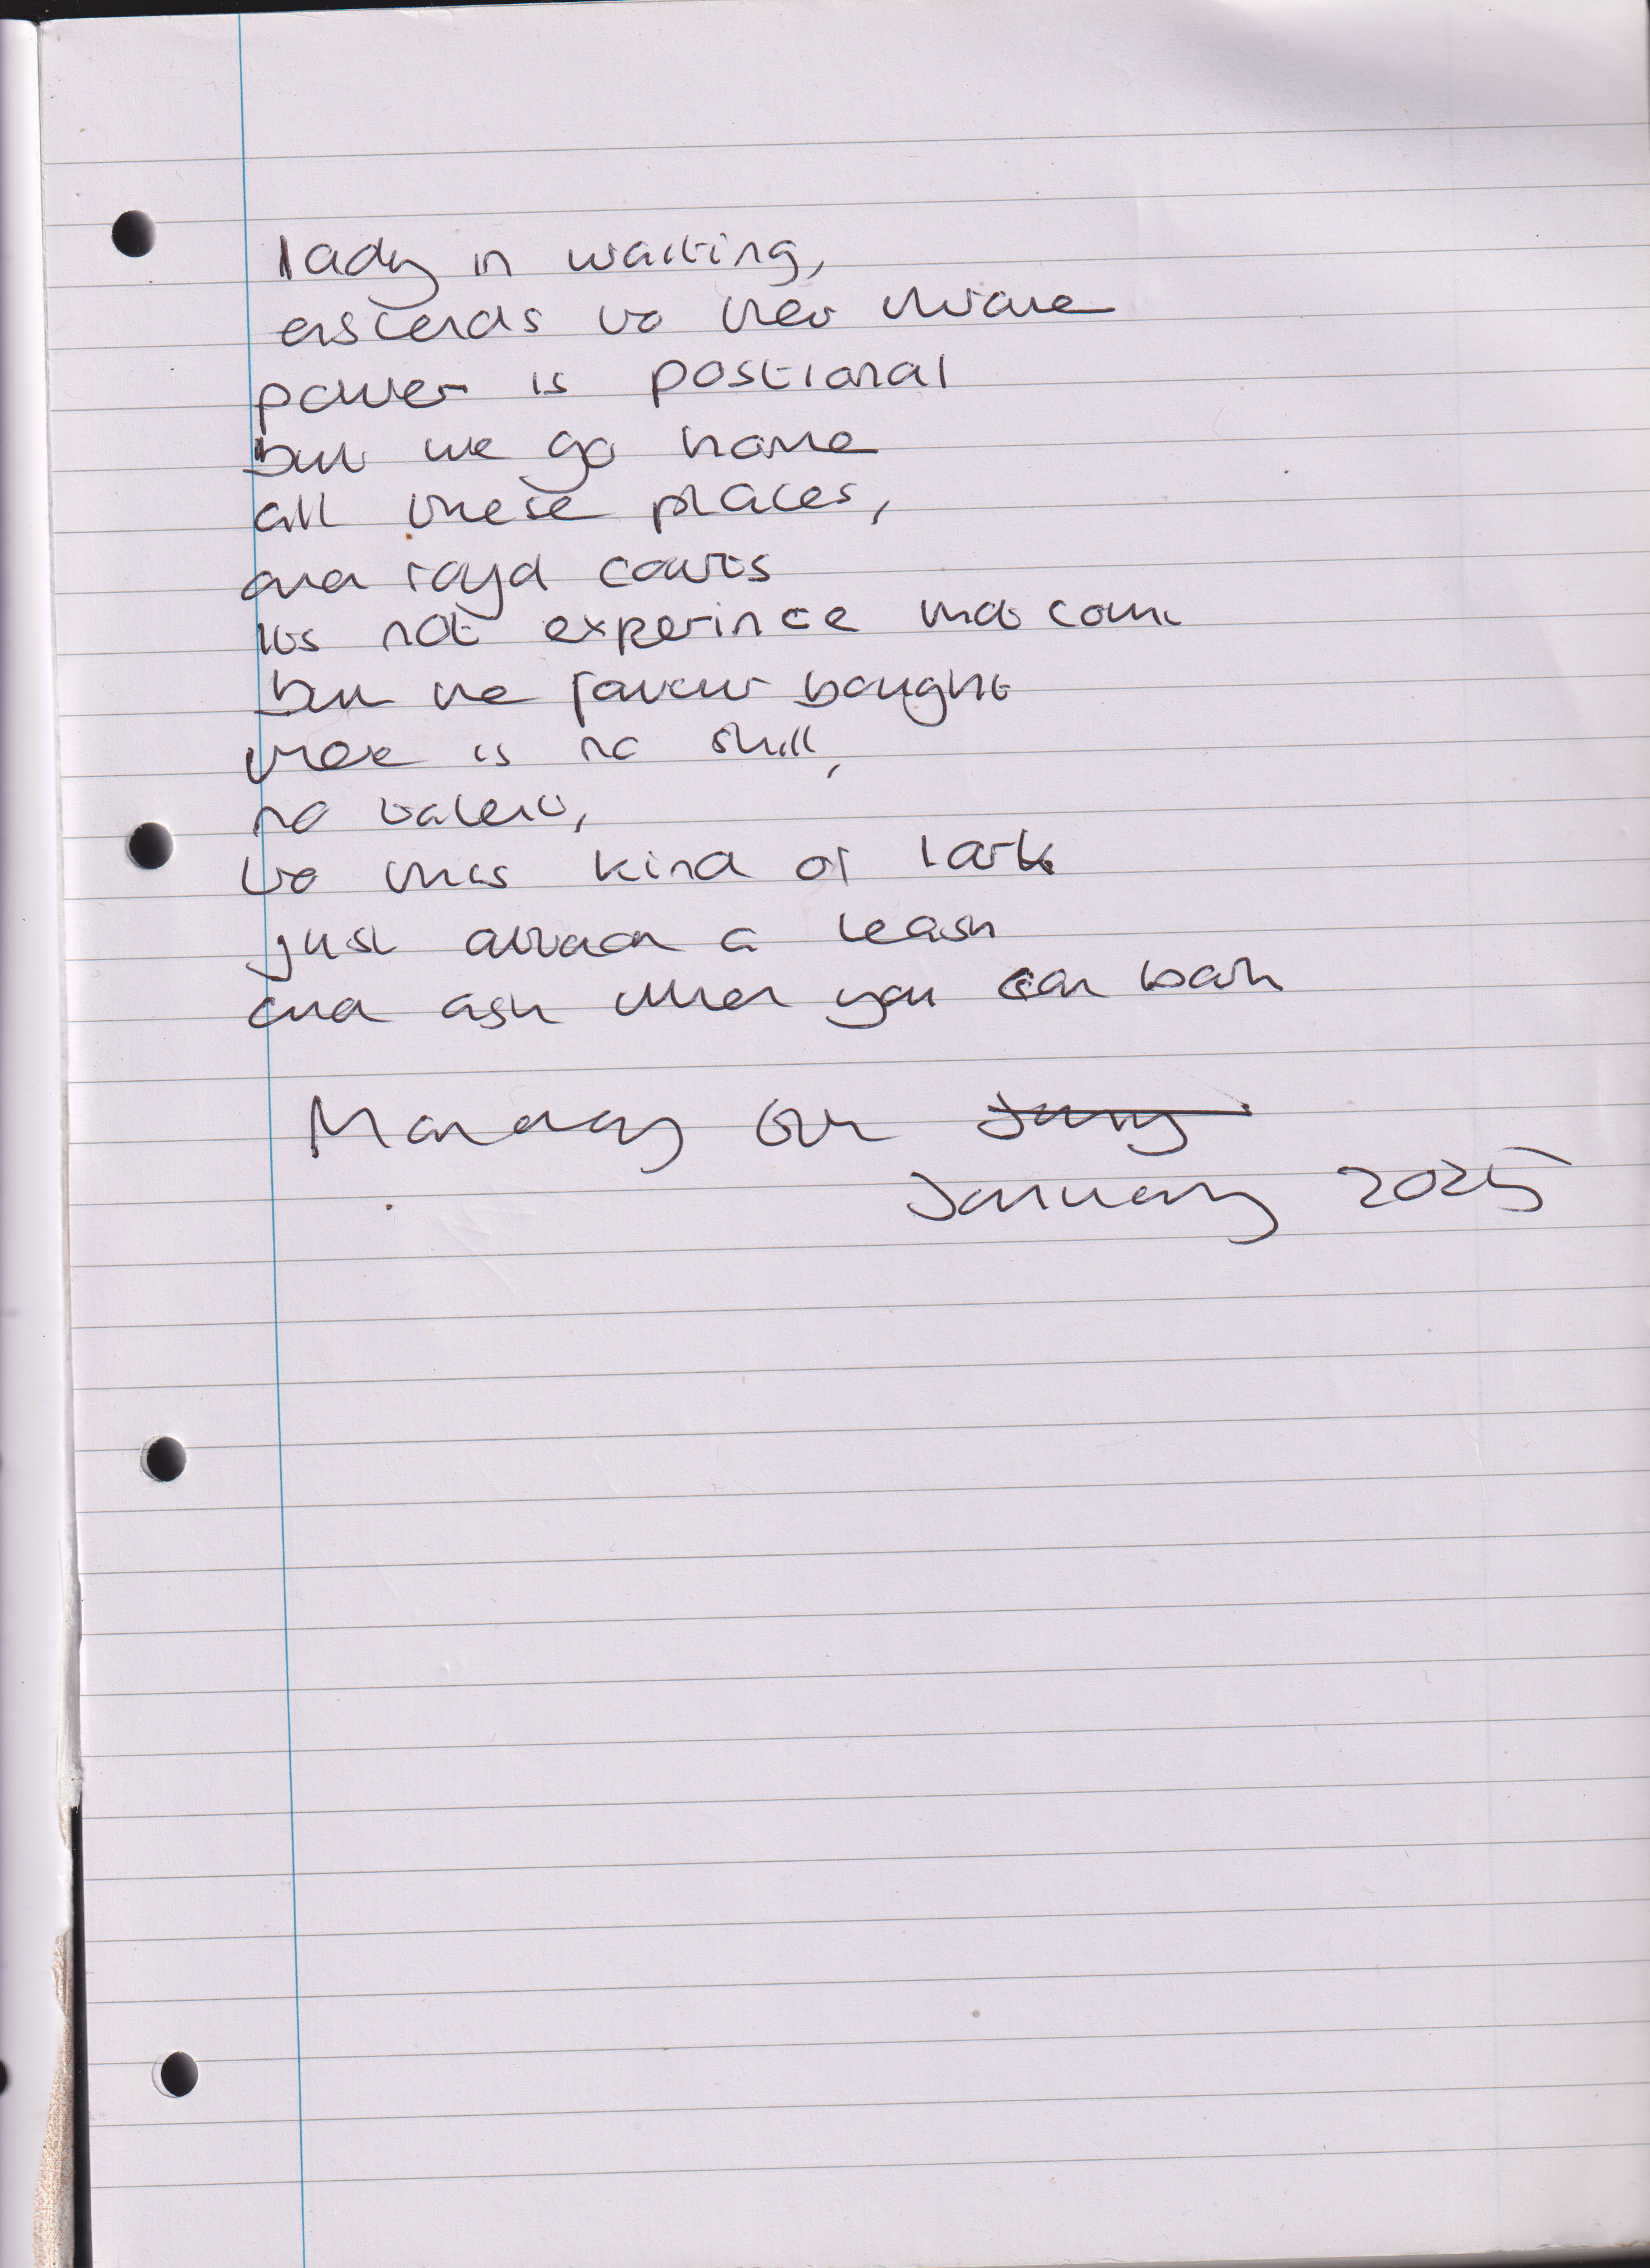 lady in waiting,
ascends to her throne
power is postional
but we go home
all these places,
and royal courts
its not experince that count
but the favour bought
there is no skill,
no talent,
to this kind of lark
just attach a leash
and ask when you can bark
Monday 6th
January 2025